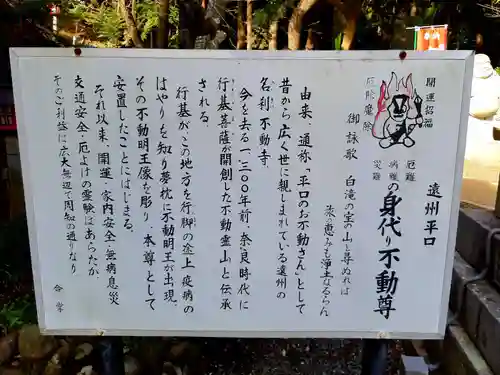 遠州平口
厄難
病難の身代り不動尊
災難
開運招福
厄除魔除
御詠歌 白滝の室の山と尋ぬれば
茶の恵みも浄土なるらん
由来、通称「平口のお不動さん」として
昔から広く世に親しまれている遠州の
名刹、不動寺。
今を去る一、三〇〇年前、奈良時代に
行基菩薩が開創した不動霊山と伝承
される。
行基がこの地方を行脚の途上疫病の
はやりを知り夢枕に不動明王が出現、
その不動明王像を彫り、本尊として
安置したことにはじまる。
それ以来、開運・家内安全・無病息災
交通安全・厄よけの霊験はあらたか
そのご利益は広大無辺で周知の通りなり
合掌